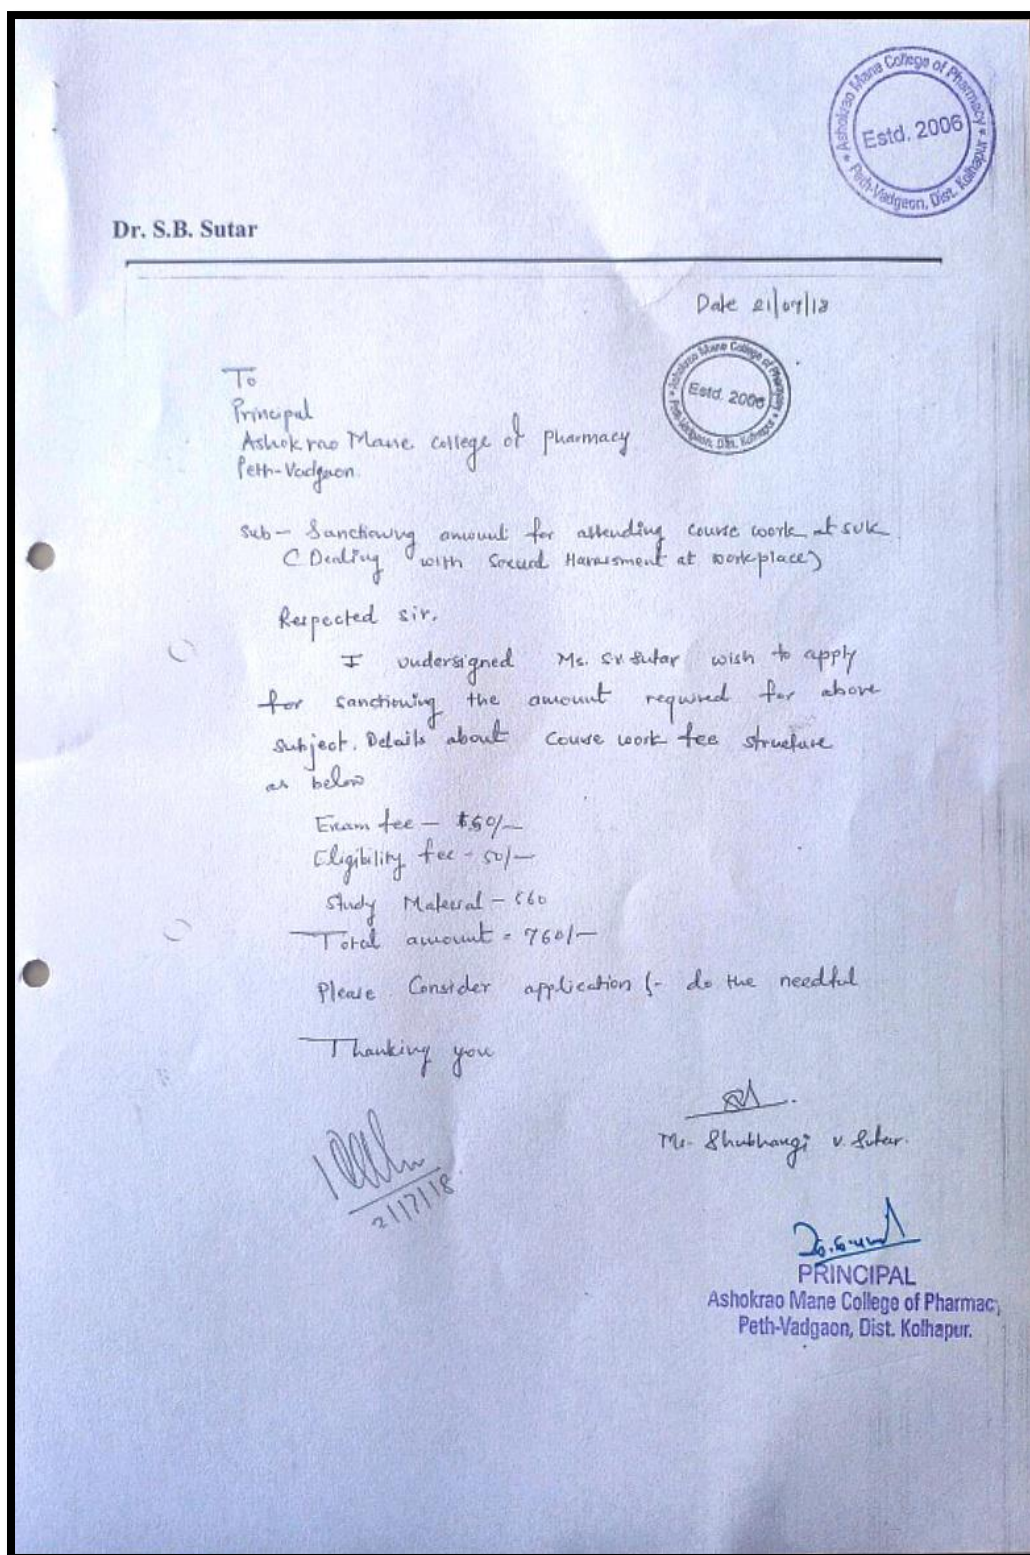 Ashokrao Mana College of Pharmacy
Estd. 2006
Peth-Vadgaon, Dist. Kolhapur
Dr. S.B. Sutar
Date 21/07/18
Ashokrao Mane College of Pharmacy
Estd. 2006
Peth-Vadgaon, Dist. Kolhapur
To
Principal
Ashokrao Mane college of pharmacy
Peth-Vadgaon.
Sub - Sanctioning amount for attending course work at SUK
(Dealing with Sexual Harrasment at workplace)
Respected sir,
I undersigned Ms. S.V. Sutar wish to apply
for sanctioning the amount required for above
subject. Details about course work fee structure
as below
Exam fee - 50/-
Eligibility fee - 50/-
Study Material - 660
Total amount = 760/-
Please Consider application & do the needful
Thanking you
Ms. Shubhangi V. Sutar.
21/7/18
PRINCIPAL
Ashokrao Mane College of Pharmacy
Peth-Vadgaon, Dist. Kolhapur.